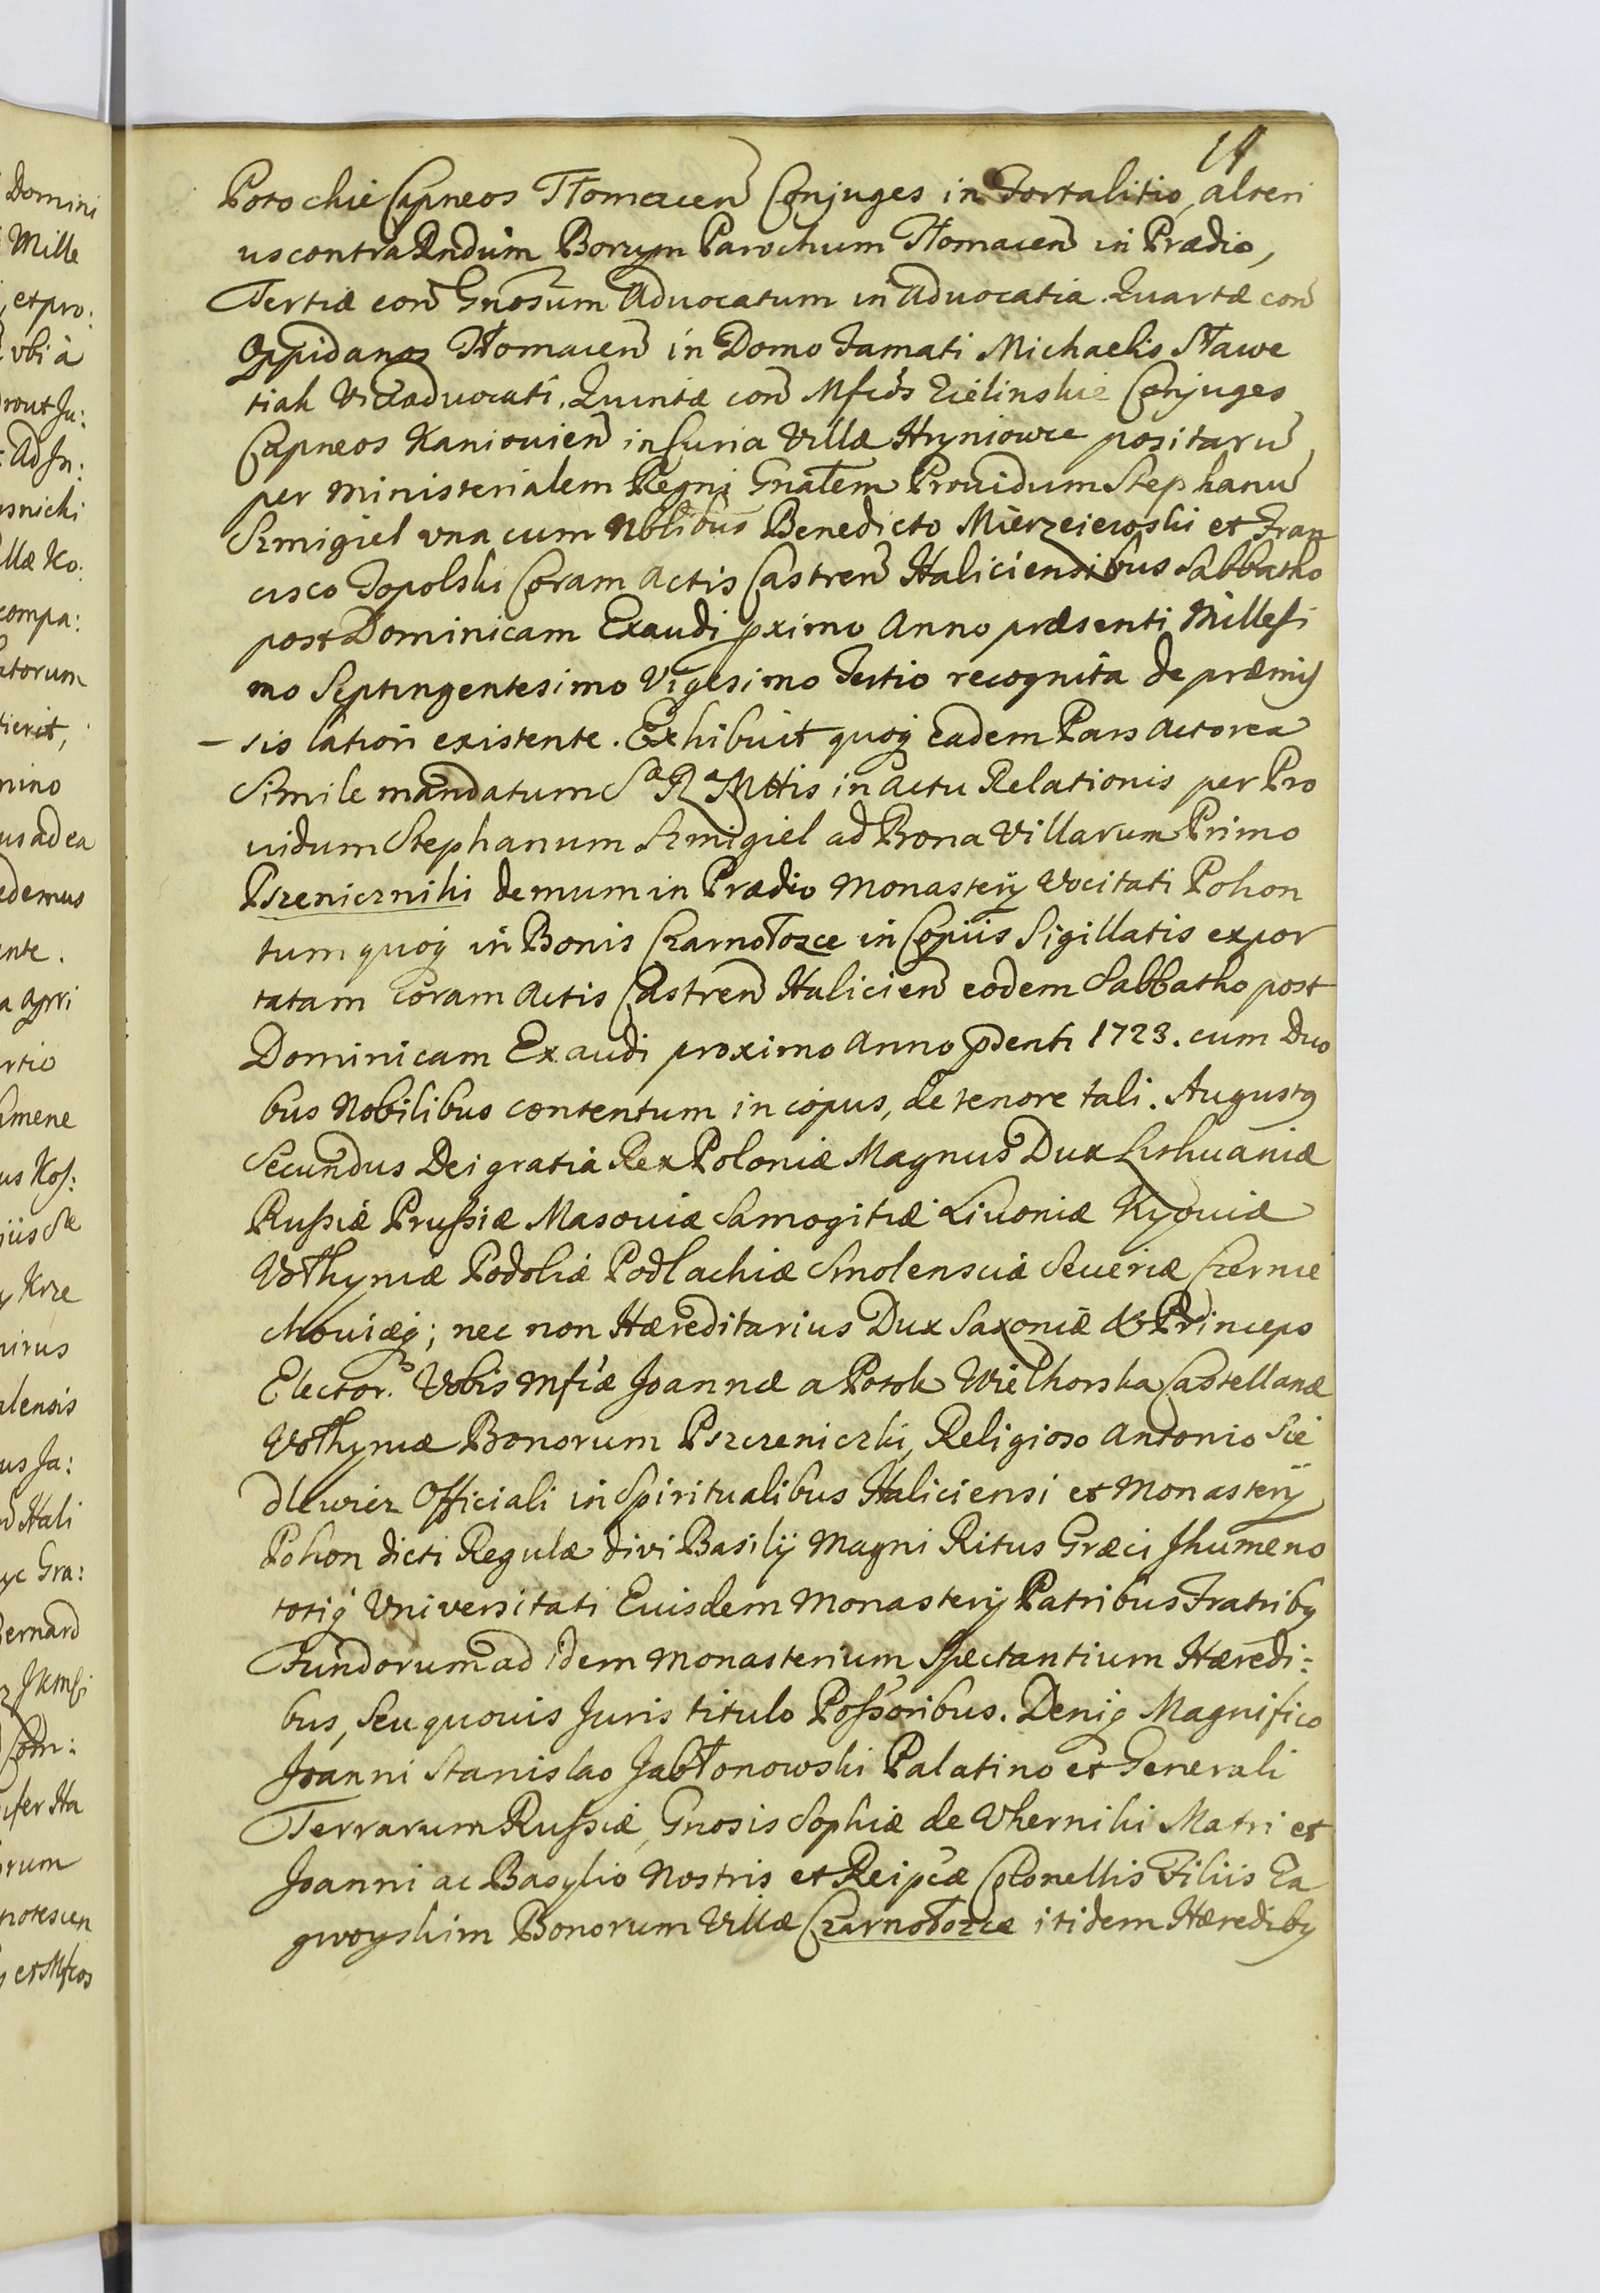 14
Potockie Capneos Tłomacen Conjuges in Fortalitio, alteri
us contra Rndum Borzym Parochum Tłomacen in Prædio,
Tertiæ con Gnosum Advocatum in Advocatia. Quartæ con
Oppidanos Tłomacen in Domo Famati Michaelis Sławe
tiak Viceadvocati. Quintæ con Mfcos Zielinskie Conjuges
Capneos Kaniouien in Curia Villæ Hryniowce positaru
per Ministerialem Regni Gnalem Prouidum Stephanu
Szmigiel vna cum Nblibus Benedicto Mierzeiewski et Fran
cisco Topolski Coram Actis Castren Haliciensibus Sabbatho
post Dominicam Exaudi pximo Anno præsenti Millesi
mo Septingentesimo Vigesimo Tertio recognita de præmis
– sis lation existente. Exhibuit quoq eadem Pars Actorea
Simile mandatum Sa Ra Mttis in actu Relationis per Pro
uidum Stephanum Szmigiel ad Bona Villarum Primo
Pszenicznihi demum in Prædio Monastery Vocitati Pohon
tum quoq in Bonis Czarnołozce in Copiis Sigillatis expor
tatam Coram Actis Castren Halicien eodem Sabbatho post
Dominicam Exaudi proximo Anno pdenti 1723. cum Duo
bus Nobilibus contentum in copus, de tenore tali. Augustq
Secundus Dei gratia Rex Poloniæ Magnus Dux Lithuaniæ
Russiæ Prussiæ Masouiæ Samogitiæ Liuoniæ Kyouiæ
Vołhyniæ Podoliæ Podlachiæ Smolensciæ Seueriæ Czernie
chouiæq; nec non Hæreditarius Dux Saxoniæ & Princeps
Elector. Vobis Mfcæ Joannæ a Potok Wielhorska Castellanæ
Vołhyniæ Bonorum Pszczeniczki, Religioso Antonio Sie
dlewicz Officiali in Spiritualibus Haliciensi et Monastery
Pohon dicti Regulæ divi Basilij Magni Ritus Græci Jhumeno
totiq Vniversitati Euisdem Monastery Patribus Fratribq
Fundorum ad idem Monasterium Spectantium Hæredi:
bus, Seu quouis Juris titulo Possoribus. Deniq Magnifico
Joanni Stanislao Jabłonowski Palatino et Generali
Terrarum Russiæ, Gnosis Sophiæ de Vhernihi Matri et
Joanni ac Basylio Nostris et Reipcæ Colonellis Filiis Za
gwoyskim Bonorum Villæ Czarnołozce itidem Hæredibq